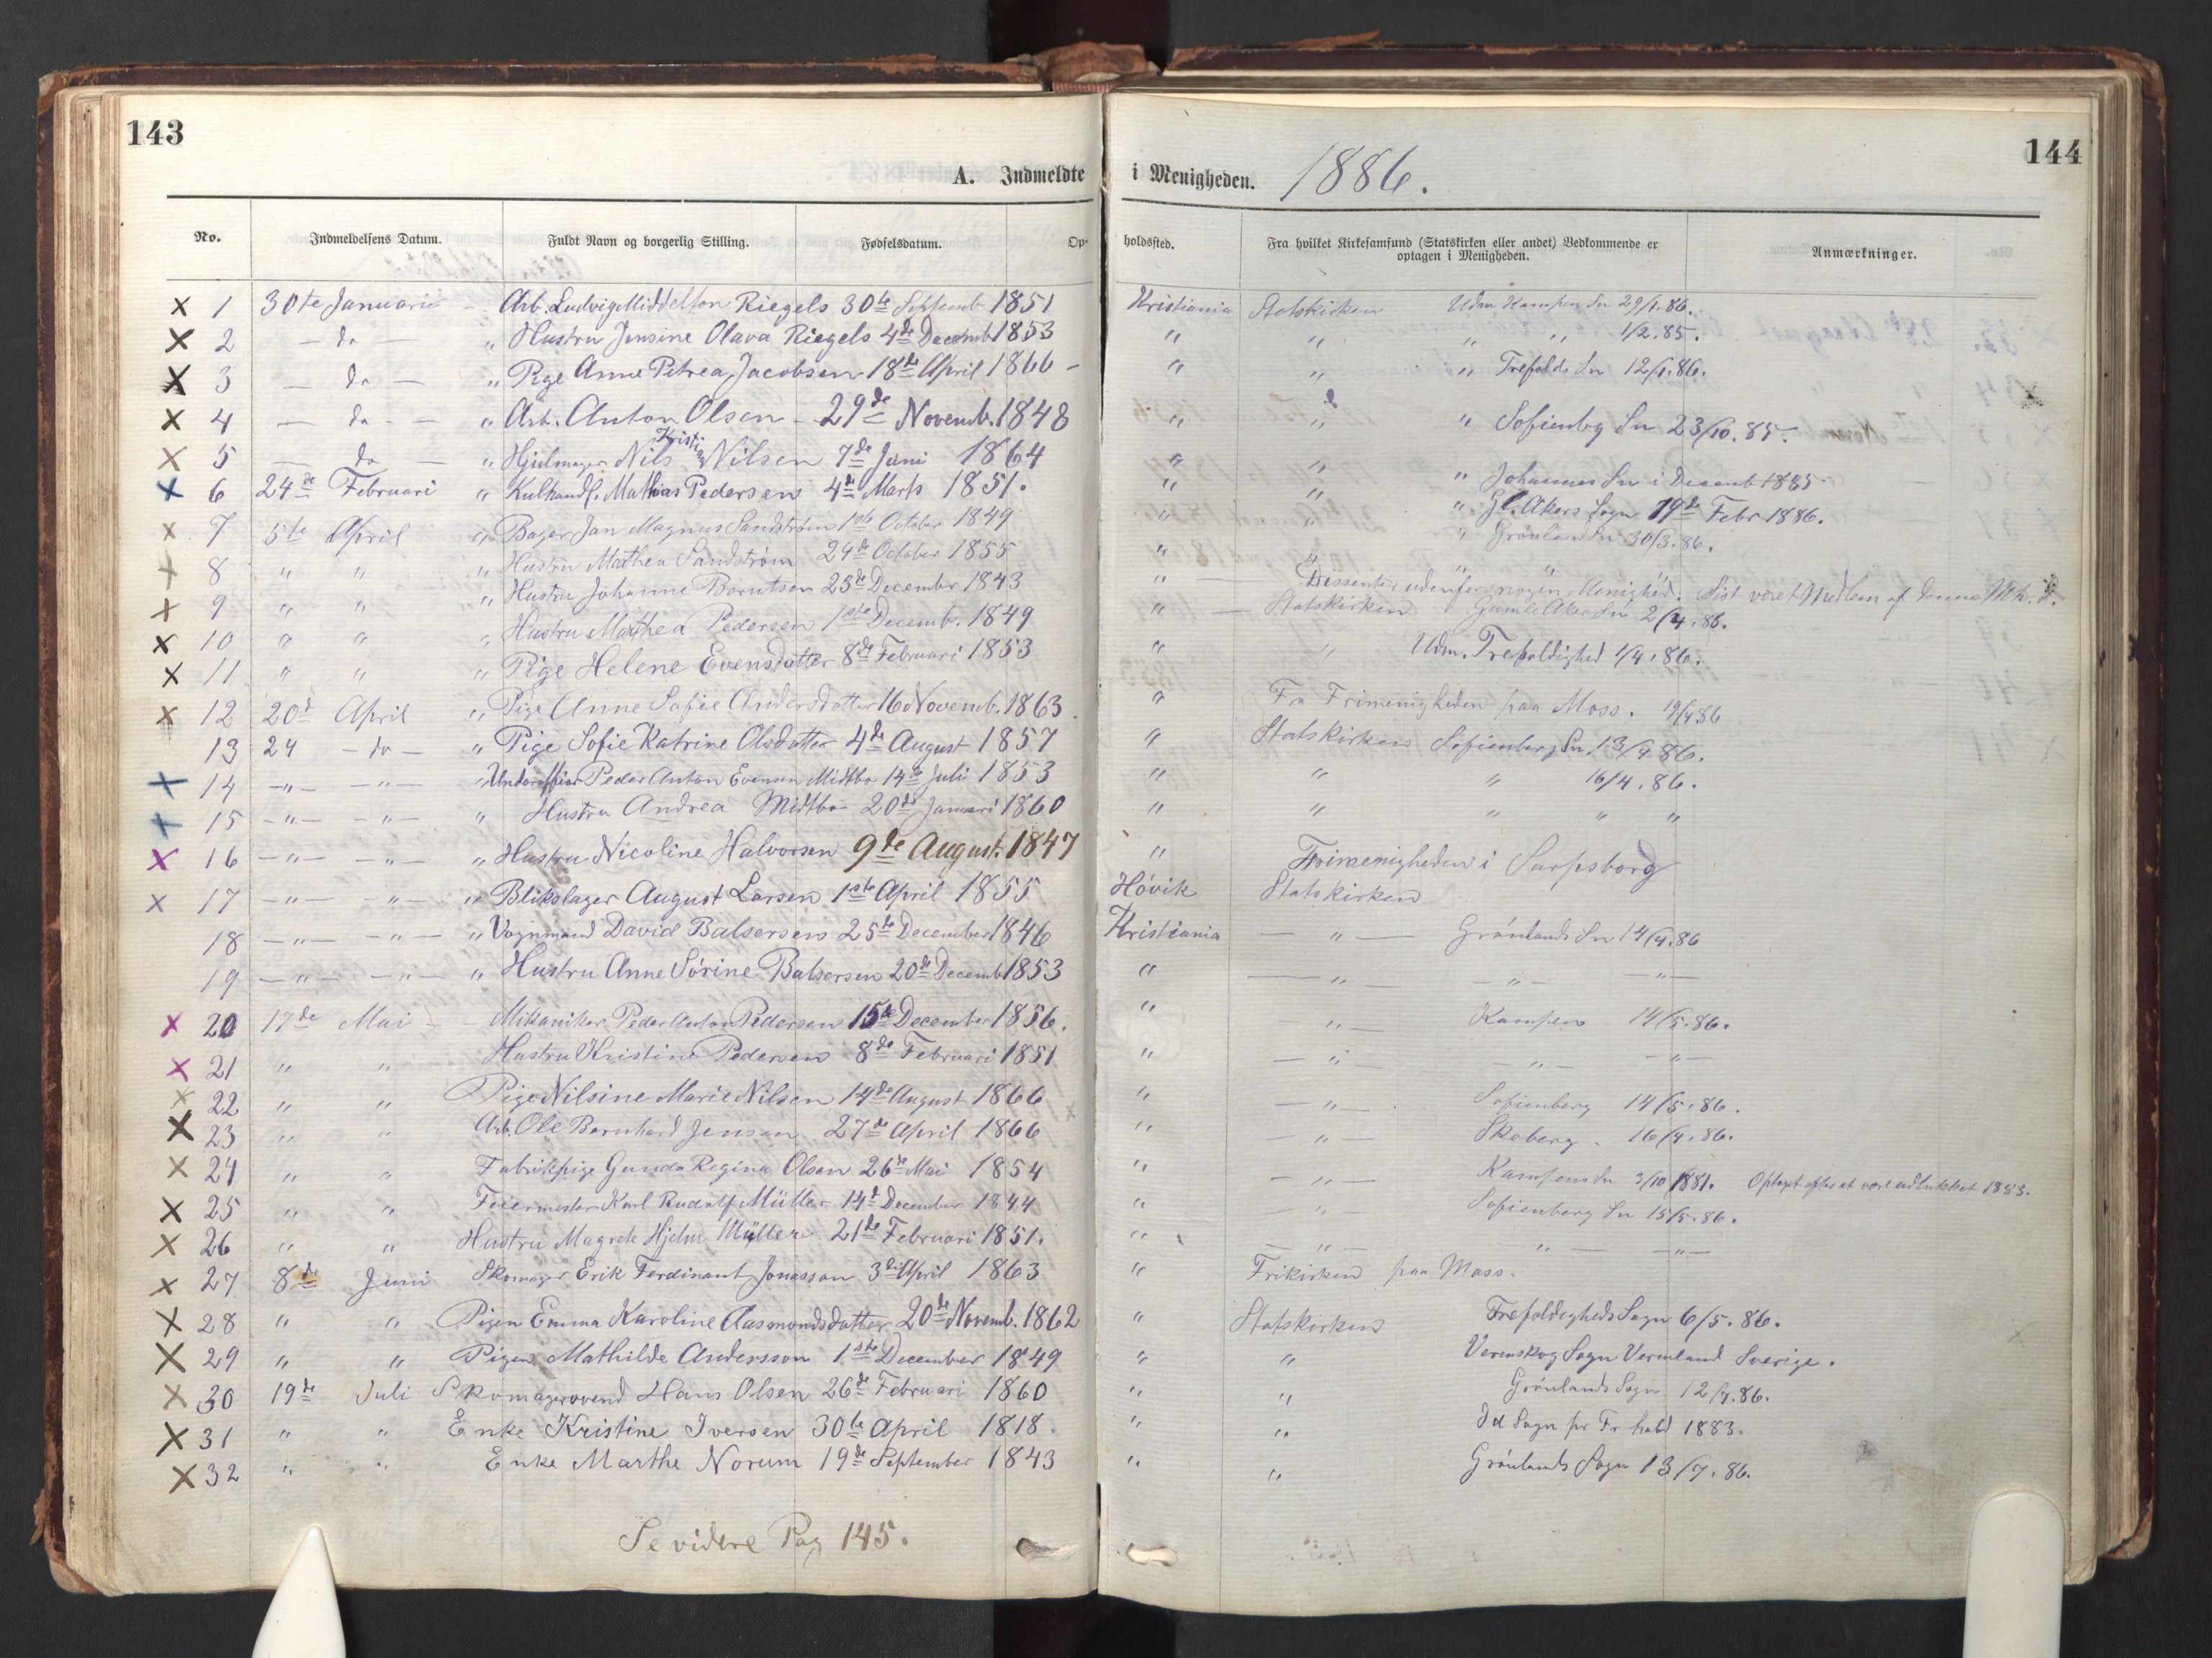 143
144
A. Indmeldte i Menigheden. 1886.
No. Indmeldelsens Datum. Fuldt Navn og borgerlig Stilling. Fødselsdatum. Opholdssted. Fra hvilket Kirkesamfund (Statskirken eller andet) Vedkommende er optagen i Menigheden. Anmærkninger.
x 1 30te Januari - Arb. Ludvig Middelton Riegels 30te Septemb 1851 Kristiania Statskirken Udm. Kampen Sn 29/1.86.
x 2 - do - " Hustru Jensine Olava Riegels 4de Decemb 1853 " " " " 1/2.85.
x 3 - do - " Pige Anne Petrea Jacobsen 18de April 1866 - " " " Trefold. Sn 12/1.86.
x 4 - do - " Arb. Anton Olsen - 29de Novemb. 1848 " " " Sofienbg Sn 23/10.85.
x 5 - do - " Hjulmager Nils Kristian Nilsen 7de Juni 1864 " " " Johannes Sn i Decemb 1885
x 6 24de Februari " Kulhandl. Mathias Pedersen 4de Marts 1851. " " " Gl. Akers Sogn 19de Febr 1886.
x 7 5te April " Bager Jan Magnus Sandström 1ste October 1849 " " " Grönland Sn 30/3.86.
x 8 " " " Hustru Marthea Sandstrøm 24de October 1855 " " " "
x 9 " " " Hustru Johanne Berntsen 23de December 1843 " - Dissenter udenfor nogen Menighed. Sist været Medlem af denne
x 10 " " " Hustru Marthea Pedersen 1ste Decemb. 1849 " - Statskirken Gamle Aker Sn 2/4.86.
x 11 " " " Pige Helene Evensdatter 8de Februari 1853 " " Udm. Trefoldighed 1/4.86.
x 12 20d April " Pige Anne Sofie Andersdatter 16 Novemb. 1863 " Fra Frimenigheden paa Moss. 19/4 86
13 24 - do - " Pige Sofie Katrine Olsdatter 4de August 1857 " Statskirken Sofienberg Sn 13/4 86.
x 14 -"- -"- " Underoffiser Peder Anton Evensen Midtbø 14de Juli 1853 " " " 16/4.86.
x 15 -"- -"- " Hustru Andrea Midtbø 20de Januari 1860 " " " " "
x 16 -"- -"- " Hustru Nicoline Halvorsen 9de August. 1847 " Frimenigheden i Sarpsborg
x 17 -"- -"- " Blikslager August Larsen 1ste April 1855 Hövik Statskirken
18 -"- -"- " Vognmand David Balsersen 25te December 1846 Kristiania - " - Grönlands Sn 14/4.86
19 -"- -"- " Hustru Anne Sörine Balsersen 20de Decemb 1853 " - " - - " - - " -
x 20 17de Mai - - Mikaniker Peder Anton Pedersen 15de December 1856. " " - Kampen 14/5.86.
x 21 " " Hustru Kristine Pedersen 8de Februari 1851 " - " - - " - - " -
x 22 " " Pige Nilsine Marie Nilsen 14de August 1866 " - " - Sofienberg 14/5.86.
x 23 " " Arb. Ole Bernhard Jensen 27de April 1866 " - " - Skeberg. 16/4.86.
x 24 " " Fabrikpige Gunda Regina Olsen 26de Mai 1854 " - " - Kampens Sn 3/10 1881. Optaget efter at være udlukket 1883.
x 25 " " Feiermester Karl Rudolf Müller 14d December 1844 " - " - Sofienberg Sn 15/5.86.
x 26 " " Hustru Magrete Hjelm Müller 21de Februari 1851. " - " - " - - " -
x 27 8de Juni Skomager Erik Ferdinant Jonasson 3die April 1863 " Frikirken paa Moss.
x 28 " " Pigen Emma Karoline Aasmondsdatter 20de Novemb. 1862 " Statskirken Trefoldigheds Sogn 6/5.86.
x 29 " " Pigen Mathilde Andersson 1ste December 1849 " " Vermskog Sogn Vermland Sverige.
x 30 19de Juli Skomagersvend Hans Olsen 26de Februari 1860 " " Grönlands Sogn 12/7.86.
x 31 " " Enke Kristine Iversen 30te April 1818. " " Id Sogn pr Fr.hald 1883.
x 32 " " Enke Marthe Norum 19de September 1843 " " Grönlands Sogn 13/7.86.
Se videre Pag 145.